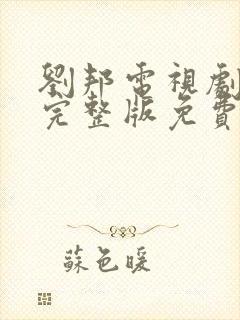 劉邦電視劇
完整版免費
蘇色暖